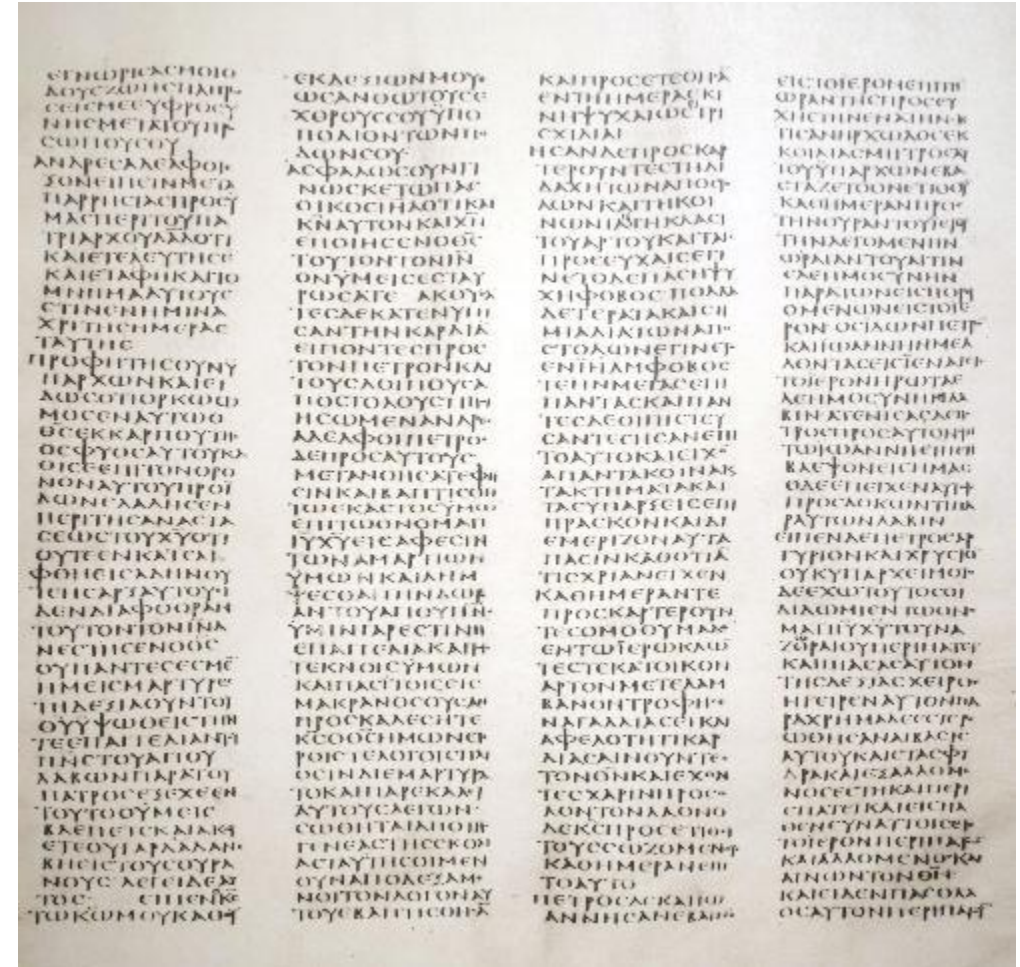 ΕΓΝΩΡΙCΑCΜΟΙΟ
ΔΟΥCΖΩΗCΠΛΗΡ
CΕΙCΜΕΕΥΦΡΟCΥ
ΝΗCΜΕΤΑΤΟΥΠΡ
CΩΠΟΥCΟΥ
ΑΝΔΡΕCΑΔΕΛΦΟΙ
ΞΟΝΕΙΠΕΙΝΜΕΤΑ
ΠΑΡΡΗCΙΑCΠΡΟCΥ
ΜΑCΠΕΡΙΤΟΥΠΑ
ΤΡΙΑΡΧΟΥΔΑΔΟΤΙ
ΚΑΙΕΤΕΛΕΥΤΗCΕ
ΚΑΙΕΤΑΦΗΚΑΙΤΟ
ΜΝΗΜΑΑΥΤΟΥΕ
CΤΙΝΕΝΗΜΙΝΑ
ΧΡΙΤΗCΗΜΕΡΑC
ΤΑΥΤΗC
ΠΡΟΦΗΤΗCΟΥΝΥ
ΠΑΡΧΩΝΚΑΙΕΙ
ΔΩCΟΤΙΟΡΚΩΩ
ΜΟCΕΝΑΥΤΩΟ
ΘCΕΚΚΑΡΠΟΥΤΗ
ΟCΦΥΟCΑΥΤΟΥΚΑ
ΘΙCΕΕΠΙΤΟΝΘΡΟ
ΝΟΝΑΥΤΟΥΠΡΟΪ
ΔΩΝΕΛΑΛΗCΕΝ
ΠΕΡΙΤΗCΑΝΑCΤΑ
CΕΩCΤΟΥΧΥΟΤΙ
ΟΥΤΕΕΝΚΑΤΕΛΙ
ΦΘΗΕΙCΑΔΗΝΟΥ
ΤΕΗCΑΡΞΑΥΤΟΥΙ
ΔΕΝΔΙΑΦΘΟΡΑΝ
ΤΟΥΤΟΝΤΟΝΙΝΑ
ΝΕCΤΗCΕΝΟΘC
ΟΥΠΑΝΤΕCΕCΜΕ
ΗΜΕΙCΜΑΡΤΥΡΕ
ΤΗΔΕΞΙΑΟΥΝΤΟΥ
ΘΥΥΨΩΘΕΙCΤΗΝ
ΤΕΕΠΑΓΓΕΛΙΑΝΤΟΥ
ΠΝCΤΟΥΑΓΙΟΥ
ΛΑΒΩΝΠΑΡΑΤΟΥ
ΠΑΤΡΟCΕΞΕΧΕΕΝ
ΤΟΥΤΟΟΥΜΕΙC
ΒΛΕΠΕΤΕΚΑΙΑΚΟΥ
ΕΤΕΟΥΓΑΡΔΑΔΑΝΕ
ΒΗΕΙCΤΟΥCΟΥΡΑ
ΝΟΥC ΛΕΓΕΙΔΕΑΥ
ΤΟC ΕΙΠΕΝΚC
ΤΩΚΩΜΟΥΚΑΘΟΥ
ΕΚΔΕΞΙΩΝΜΟΥ
ΕΩCΑΝΘΩΤΟΥCΕ
ΧΘΡΟΥCCΟΥΥΠΟ
ΠΟΔΙΟΝΤΩΝΠΟ
ΔΩΝCΟΥ
ΑCΦΑΛΩCΟΥΝΓΙ
ΝΩCΚΕΤΩΠΑC
ΟΙΚΟCΙΗΛΟΤΙΚΑΙ
ΚΝΑΥΤΟΝΚΑΙΧΝ
ΕΠΟΙΗCΕΝΟΘC
ΤΟΥΤΟΝΤΟΝΙΝ
ΟΝΥΜΕΙCΕCΤΑΥ
ΡΩCΑΤΕ ΑΚΟΥCΑ
ΤΕCΔΕΚΑΤΕΝΥΓΗ
CΑΝΤΗΝΚΑΡΔΙΑ
ΕΙΠΟΝΤΕCΠΡΟC
ΤΟΝΠΕΤΡΟΝΚΑΙ
ΤΟΥCΛΟΙΠΟΥCΑ
ΠΟCΤΟΛΟΥCΤΙΠΟΙ
ΗCΩΜΕΝΑΝΔΡΕC
ΑΔΕΛΦΟΙΠΕΤΡΟC
ΔΕΠΡΟCΑΥΤΟΥC
ΜΕΤΑΝΟΗCΑΤΕΦΗ
CΙΝΚΑΙΒΑΠΤΙCΘΗ
ΤΩΕΚΑCΤΟCΥΜΩ
ΕΠΙΤΩΟΝΟΜΑΤΙ
ΙΥΧΥΕΙCΑΦΕCΙΝ
ΤΩΝΑΜΑΡΤΙΩΝ
ΥΜΩΝΚΑΙΛΗΜ
ΨΕCΘΑΙΤΗΝΔΩΡΕ
ΑΝΤΟΥΑΓΙΟΥΠΝC
ΥΜΙΝΓΑΡΕCΤΙΝΗ
ΕΠΑΓΓΕΛΙΑΚΑΙΤΟΙC
ΤΕΚΝΟΙCΥΜΩΝ
ΚΑΙΠΑCΙΤΟΙCΕΙC
ΜΑΚΡΑΝΟCΟΥCΑΝ
ΠΡΟCΚΑΛΕCΗΤΕ
ΚCΟΘCΗΜΩΝΕΤΕ
ΡΟΙCΤΕΛΟΓΟΙCΠΛΙ
ΟCΙΝΔΙΕΜΑΡΤΥΡΑ
ΤΟΚΑΙΠΑΡΕΚΑΛΕΙ
ΑΥΤΟΥCΛΕΓΩΝ
CΩΘΗΤΑΙΑΠΟΤΗC
ΓΕΝΕΑCΤΗCCΚΟΛΙ
ΑCΤΑΥΤΗCΟΙΜΕΝ
ΟΥΝΑΠΟΔΕΞΑΜΕ
ΝΟΙΤΟΝΛΟΓΟΝΑΥ
ΤΟΥΕΒΑΠΤΙCΘΗCΑ
ΚΑΙΠΡΟCΕΤΕΘΗCΑ
ΕΝΤΗΗΜΕΡΑΕΚΙ
ΝΗΨΥΧΑΙΩCΤΡΙ
CΧΙΛΙΑΙ
ΗCΑΝΔΕΠΡΟCΚΑΡ
ΤΕΡΟΥΝΤΕCΤΗΔΙ
ΔΑΧΗΤΩΝΑΠΟCΤΟ
ΛΩΝΚΑΙΤΗΚΟΙ
ΝΩΝΙΑΤΗΚΛΑCΙ
ΤΟΥΑΡΤΟΥΚΑΙΤΑΙC
ΠΡΟCΕΥΧΑΙCΕΓΙ
ΝΕΤΟΔΕΠΑCΗΨΥ
ΧΗΦΟΒΟCΠΟΛΛΑ
ΔΕΤΕΡΑΤΑΚΑΙCΗ
ΜΙΑΔΙΑΤΩΝΑΠΟ
CΤΟΛΩΝΕΓΙΝΕΤΟ
ΕΝΪΗΛΜΦΟΒΟC
ΤΕΗΝΜΕΓΑCΕΠΙ
ΠΑΝΤΑCΚΑΙΠΑΝ
ΤΕCΔΕΟΙΠΙCΤΕΥ
CΑΝΤΕCΗCΑΝΕΠΙ
ΤΟΑΥΤΟΚΑΙΕΙΧΟΝ
ΑΠΑΝΤΑΚΟΙΝΑΚΑΙ
ΤΑΚΤΗΜΑΤΑΚΑΙ
ΤΑCΥΠΑΡΞΕΙCΕΠΙ
ΠΡΑCΚΟΝΚΑΙΔΙ
ΕΜΕΡΙΖΟΝΑΥΤΑ
ΠΑCΙΝΚΑΘΟΤΙΑ
ΤΙCΧΡΙΑΝΕΙΧΕΝ
ΚΑΘΗΜΕΡΑΝΤΕ
ΠΡΟCΚΑΡΤΕΡΟΥΝ
ΤΕCΟΜΟΘΥΜΑΔΟΝ
ΕΝΤΩΪΕΡΩΚΛΩΝ
ΤΕCΤΕΚΑΤΟΙΚΟΝ
ΑΡΤΟΝΜΕΤΕΛΑΜ
ΒΑΝΟΝΤΡΟΦΗC
ΝΑΓΑΛΛΙΑCΕΙΚΑΙ
ΑΦΕΛΟΤΗΤΙΚΑΡ
ΔΙΑCΑΙΝΟΥΝΤΕC
ΤΟΝΘΝΚΑΙΕΧΟΝ
ΤΕCΧΑΡΙΝΠΡΟC
ΛΟΝΤΟΝΛΑΟΝΟ
ΔΕΚCΠΡΟCΕΤΙΘΙ
ΤΟΥCCΩΖΟΜΕΝΟΥC
ΚΑΘΗΜΕΡΑΝΕΠΙ
ΤΟΑΥΤΟ
ΠΕΤΡΟCΔΕΚΑΙΙΩ
ΑΝΝΗCΑΝΕΒΑΙΝΟ
ΕΙCΤΟΙΕΡΟΝΕΠΙΤΗ
ΩΡΑΝΤΗCΠΡΟCΕΥ
ΧΗCΤΗΝΕΝΑΤΗΝΚ
ΤΙCΑΝΗΡΧΩΛΟCΕΚ
ΚΟΙΛΙΑCΜΗΤΡΟCΑΥ
ΤΟΥΥΠΑΡΧΩΝΕΒΑ
CΤΑΖΕΤΟΟΝΕΤΙΘΟΥ
ΚΑΘΗΜΕΡΑΝΠΡΟC
ΤΗΝΘΥΡΑΝΤΟΥΪΕΡΟΥ
ΤΗΝΛΕΓΟΜΕΝΗΝ
ΩΡΑΙΑΝΤΟΥΑΙΤΙΝ
ΕΛΕΗΜΟCΥΝΗΝ
ΠΑΡΑΤΩΝΕΙCΠΟΡΕΥ
ΟΜΕΝΩΝΕΙCΤΟΙΕ
ΡΟΝ ΟCΙΔΩΝΠΕΤΡΟ
ΚΑΙΙΩΑΝΝΗΝΜΕΛ
ΛΟΝΤΑCΕΙCΪΕΝΑΙΕΙC
ΤΟΪΕΡΟΝΗΡΩΤΑΕ
ΛΕΗΜΟCΥΝΗΝΛΑ
ΒΙΝΑΤΕΝΙCΑCΔΕΠΕ
ΤΡΟCΠΡΟCΑΥΤΟΝCΥ
ΤΩΙΩΑΝΝΗΕΙΠΕΝ
ΒΛΕΨΟΝΕΙCΗΜΑC
ΟΔΕΕΠΕΙΧΕΝΑΥΤΟΙC
ΠΡΟCΔΟΚΩΝΤΙΠΑ
ΡΑΥΤΩΝΛΑΒΙΝ
ΕΙΠΕΝΔΕΠΕΤΡΟCΑΡ
ΓΥΡΙΟΝΚΑΙΧΡΥCΙΟ
ΟΥΚΥΠΑΡΧΕΙΜΟΙΟ
ΔΕΕΧΩΤΟΥΤΟCΟΙ
ΔΙΔΩΜΙΕΝΤΩΟΝΟ
ΜΑΤΙΙΥΧΥΤΟΥΝΑ
ΖΩΡΑΙΟΥΠΕΡΙΠΑΤΕΙ
ΚΑΙΠΙΑCΑCΑΥΤΟΝ
ΤΗCΔΕΞΙΑCΧΕΙΡΟC
ΗΓΕΙΡΕΝΑΥΤΟΝΠΑ
ΡΑΧΡΗΜΑΔΕΕCΤΕΡΕ
ΩΘΗCΑΝΑΙΒΑCΙC
ΑΥΤΟΥΚΑΙCΤΑCΦΥ
ΔΡΑΚΑΙΕΞΑΛΛΟΜΕ
ΝΟCΕCΤΗΚΑΙΠΕΡΙ
ΕΠΑΤΕΙΚΑΙΕΙCΗΛ
ΘΕΝCΥΝΑΥΤΟΙCΕΙC
ΤΟΪΕΡΟΝΠΕΡΙΠΑΤΩ
ΚΑΙΑΛΛΟΜΕΝΟCΚΑΙ
ΑΙΝΩΝΤΟΝΘΝ
ΚΑΙΕΙΔΕΝΠΑCΟΛΑ
ΟCΑΥΤΟΝΠΕΡΙΠΑΤΟΥ